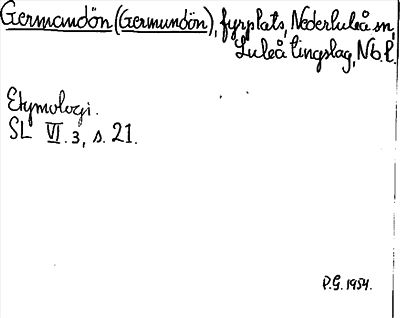 Germandön (Germundön), fyrplats, Nederluleå sn,
Luleå tingslag, Nb.l.
Etymologi.
SL VI.3, s. 21.
P.G. 1954.